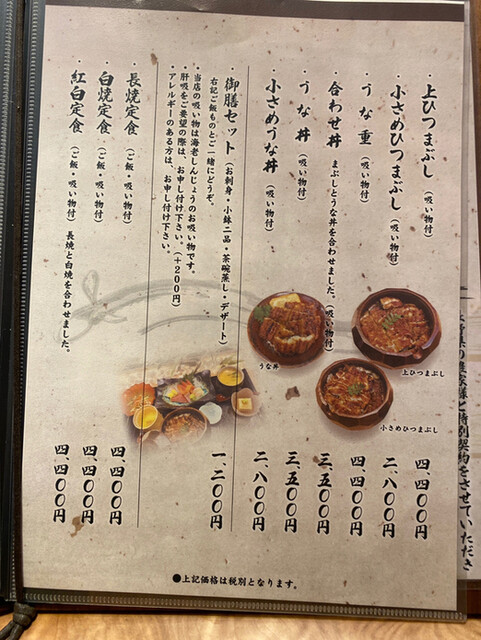 ・上ひつまぶし（吸い物付） 四、四〇〇円
・小さめひつまぶし（吸い物付） 二、八〇〇円
・うな重（吸い物付） 四、四〇〇円
合わせ丼 まぶしとうな丼を合わせました。（吸い物付） 三、五〇〇円
・うな丼（吸い物付） 三、五〇〇円
小さめうな丼（吸い物付） 二、八〇〇円
・御膳セット（お刺身・小鉢二品・茶碗蒸し・デザート） 一、二〇〇円
右記ご飯ものとご一緒にどうぞ。
・当店の吸い物は海老しんじょうのお吸い物です。
肝吸をご要望の際は、お申し付け下さい。（+200円）
・アレルギーのある方は、お申し付け下さい。
・長焼定食（ご飯・吸い物付） 四、四〇〇円
・白焼定食（ご飯・吸い物付） 四、四〇〇円
・紅白定食（ご飯・吸い物付） 長焼と白焼を合わせました。 四、四〇〇円
うな丼
上ひつまぶし
小さめひつまぶし
●上記価格は税別となります。
特別契約をさせていただき